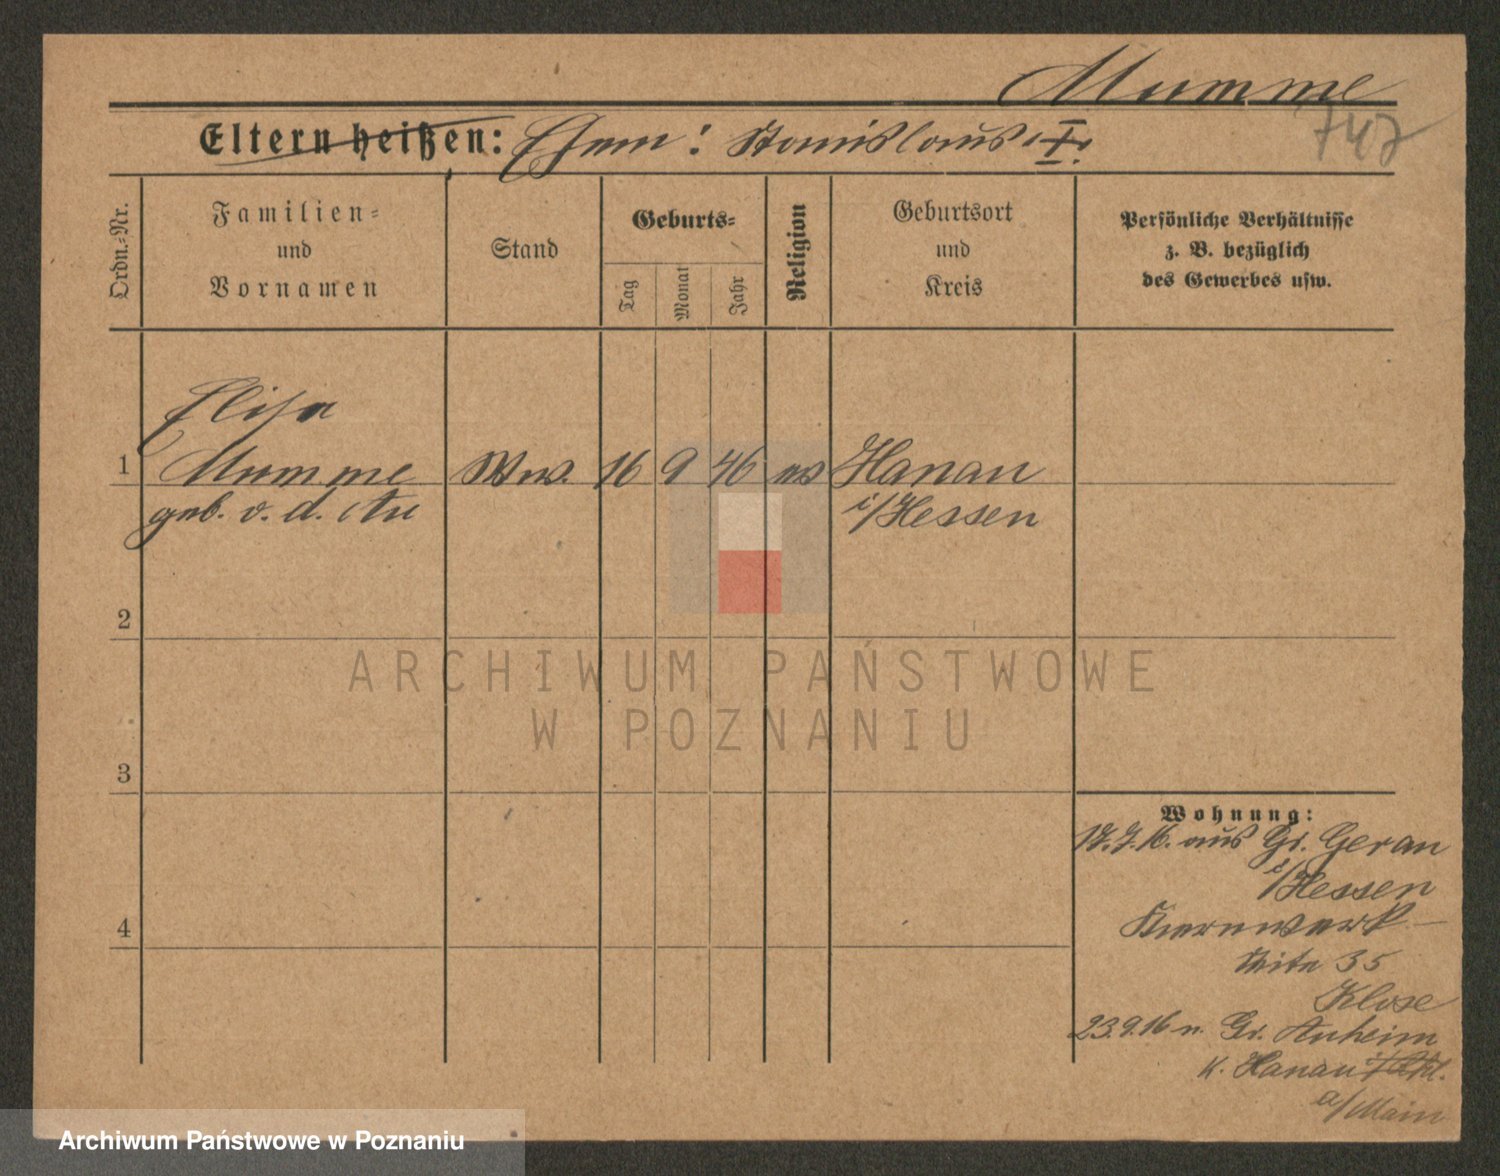 Mumme
747
Eltern heißen: Ehem: Stanislaus †.
Ordn.-Nr.
Familien-
und
Vornamen
Stand
Geburts-
Tag
Monat
Jahr
Religion
Geburtsort
und
Kreis
Persönliche Verhältnisse
z. B. bezüglich
des Gewerbes usw.
Elisa
1 Mumme Ww. 16 9 46 ev Hanau
geb. v. d. Au i/Hessen
2
ARCHIWUM PAŃSTWOWE
W POZNANIU
3
Wohnung:
17.7.16. aus Gr. Gerau
i/Hessen
4
35
Klose
23.9.16 n. Gr. Auheim
K. Hanau
a/Main
Archiwum Państwowe w Poznaniu